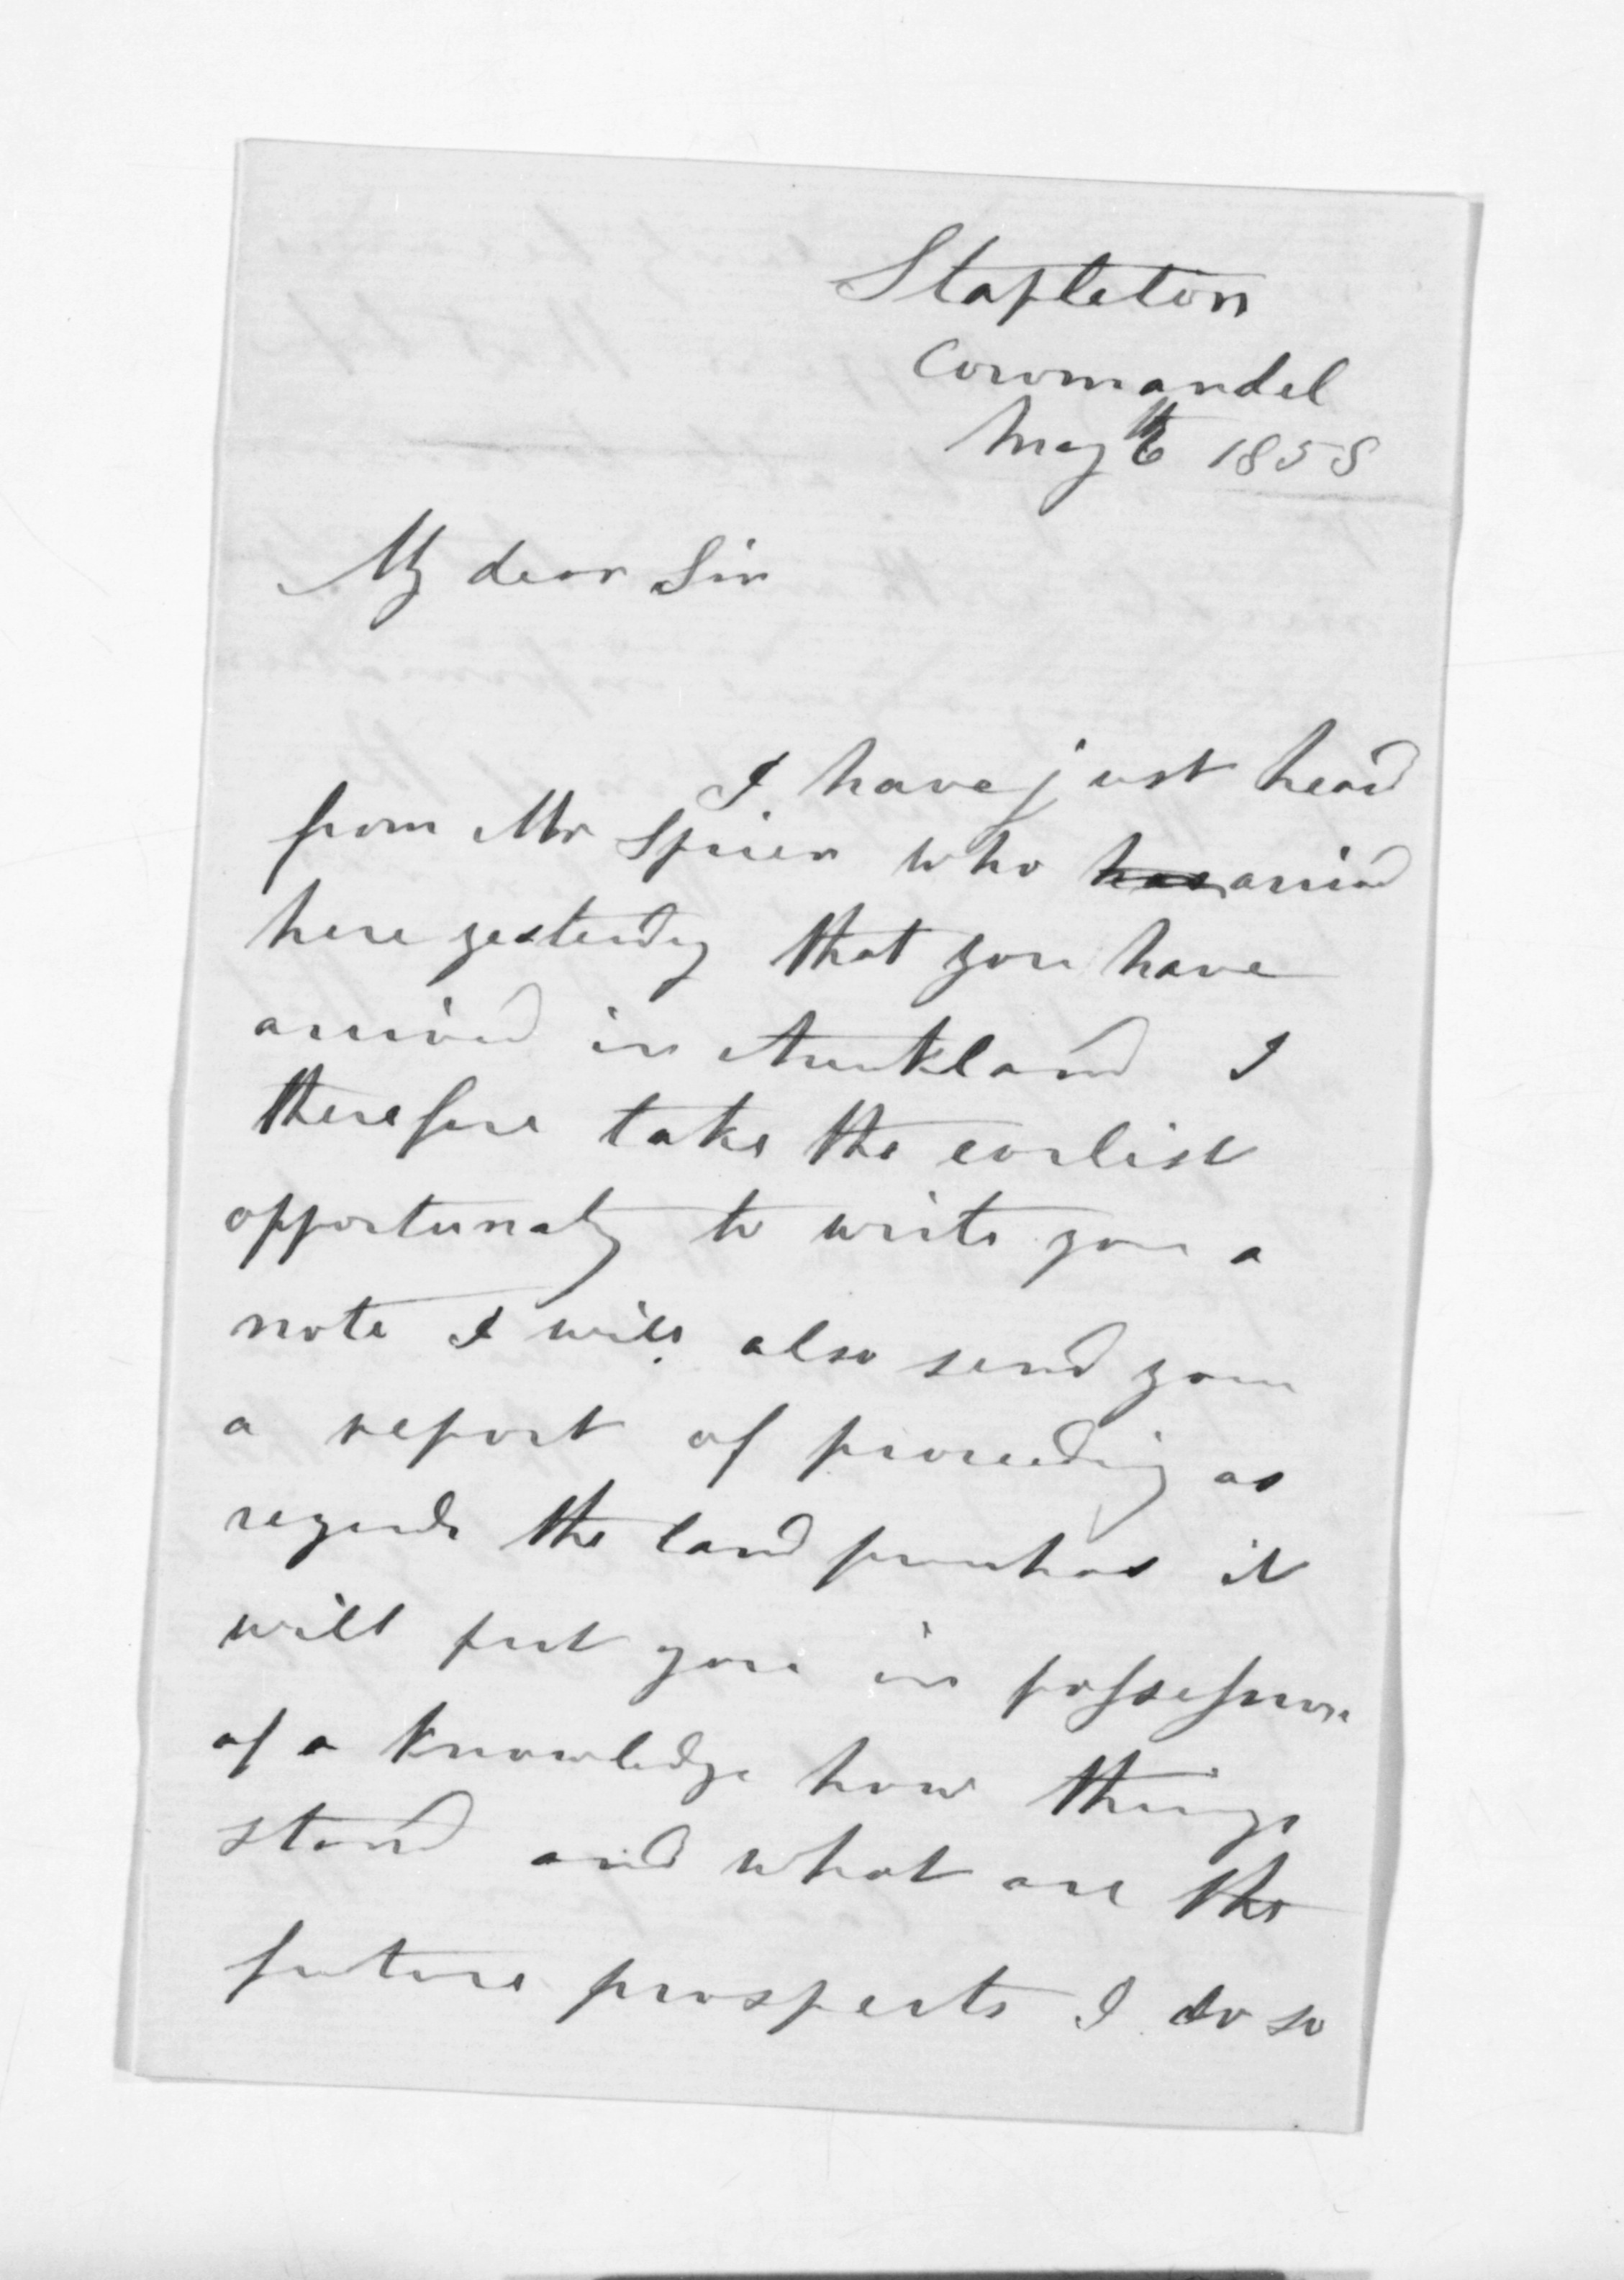 Stapleton
Coromandel
May 6th 1858
My dear Sir
I have just heard
from Mr Spicer who <s>has</s> arrived
here yesterday that you have
arrived in Auckland I
therefore take the earlist
opportunaty to write you a
note I will also send you
a report of proceeding as
regards the land purchas it
will put you in possession
of a knowledge how things
stand and what are the
future prospects I do so